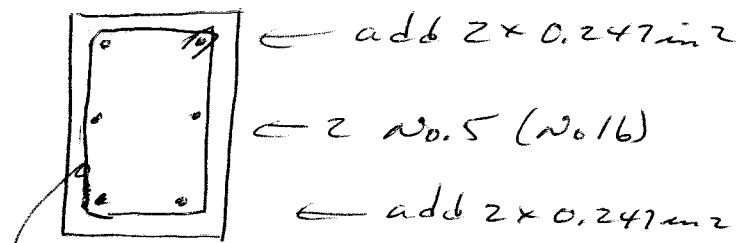 ← add 2 × 0.247 in 2
← 2 No. 5 (No 16)
← add 2 × 0.247 in 2